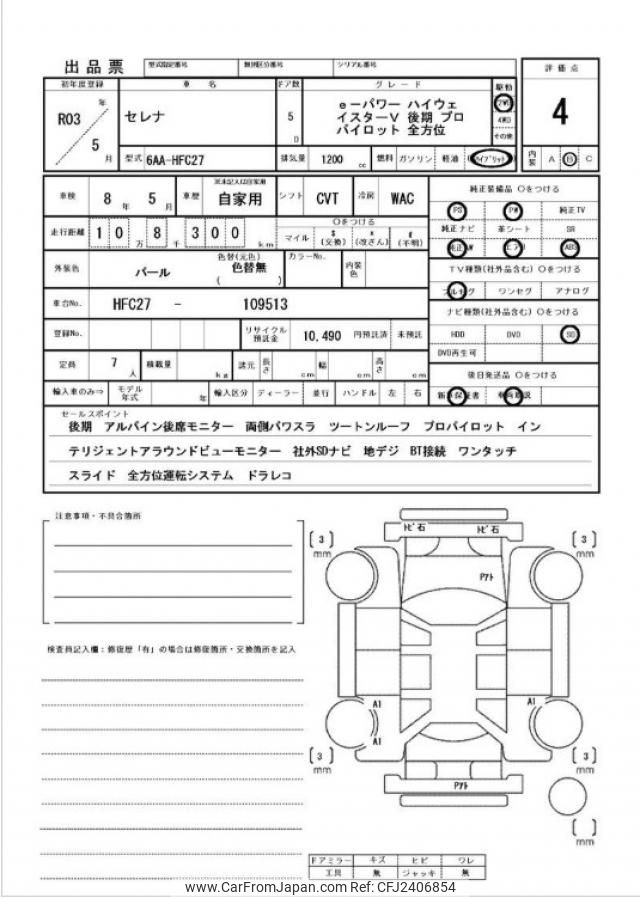 出品票 型式指定番号 類別区分番号 シリアル番号
初年度登録 車名 ドア数 グレード 駆動 評価点
R03 年 5 月
セレナ
5 D
e－パワー ハイウェ
イスターV 後期 プロ
パイロット 全方位
2WD
4WD
その他
4
型式 6AA-HFC27 排気量 1200 cc 燃料 ガソリン 軽油 ハイブリット
内装 A B C
車検 8 年 5 月 車歴 ※未記入は自家用 自家用 シフト CVT 冷房 WAC
純正装備品 ○をつける
PS PW 純正TV
純正ナビ 革シート SR
純正AW エアB ABS
走行距離 10 万 8 千 300 km
○をつける
マイル $ (交換) * (改ざん) # (不明)
外装色 パール 色替(元色) 色替無 ( ) カラーNo. 内装色
TV種類(社外品含む) ○をつける
フルセグ ワンセグ アナログ
車台No. HFC27 - 109513
ナビ種類(社外品含む) ○をつける
HDD DVD SD
DVD再生可
登録No. リサイクル預託金 10,490 円預託済 未預託
定員 7 人 積載量 kg 諸元 長さ cm 幅 cm 高さ cm
後日発送品 ○をつける
新車保証書 車両取説
輸入車のみ⇒ モデル年式 年 輸入区分 ディーラー 並行 ハンドル 左 右
セールスポイント
後期 アルパイン後席モニター 両側パワスラ ツートンルーフ プロパイロット イン
テリジェントアラウンドビューモニター 社外SDナビ 地デジ BT接続 ワンタッチ
スライド 全方位運転システム ドラレコ
注意事項・不具合箇所
検査員記入欄：修復歴「有」の場合は修復箇所・交換箇所を記入
トビ石 トビ石
[3] mm
[3] mm
Pアト
A1
A1
A1
[3] mm
[3] mm
Pアト
[ ] mm
ドアミラー キズ ヒビ ワレ
工具 無 ジャッキ 無
www.CarFromJapan.com Ref: CFJ2406854